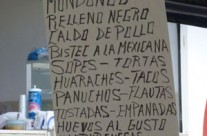 MONDONGO
RELLENO NEGRO
CALDO DE POLLO
BISTEC A LA MEXICANA
SOPES - TORTAS
HUARACHES - TACOS
PANUCHOS - FLAUTAS
TOSTADAS - EMPANADAS
HUEVOS AL GUSTO